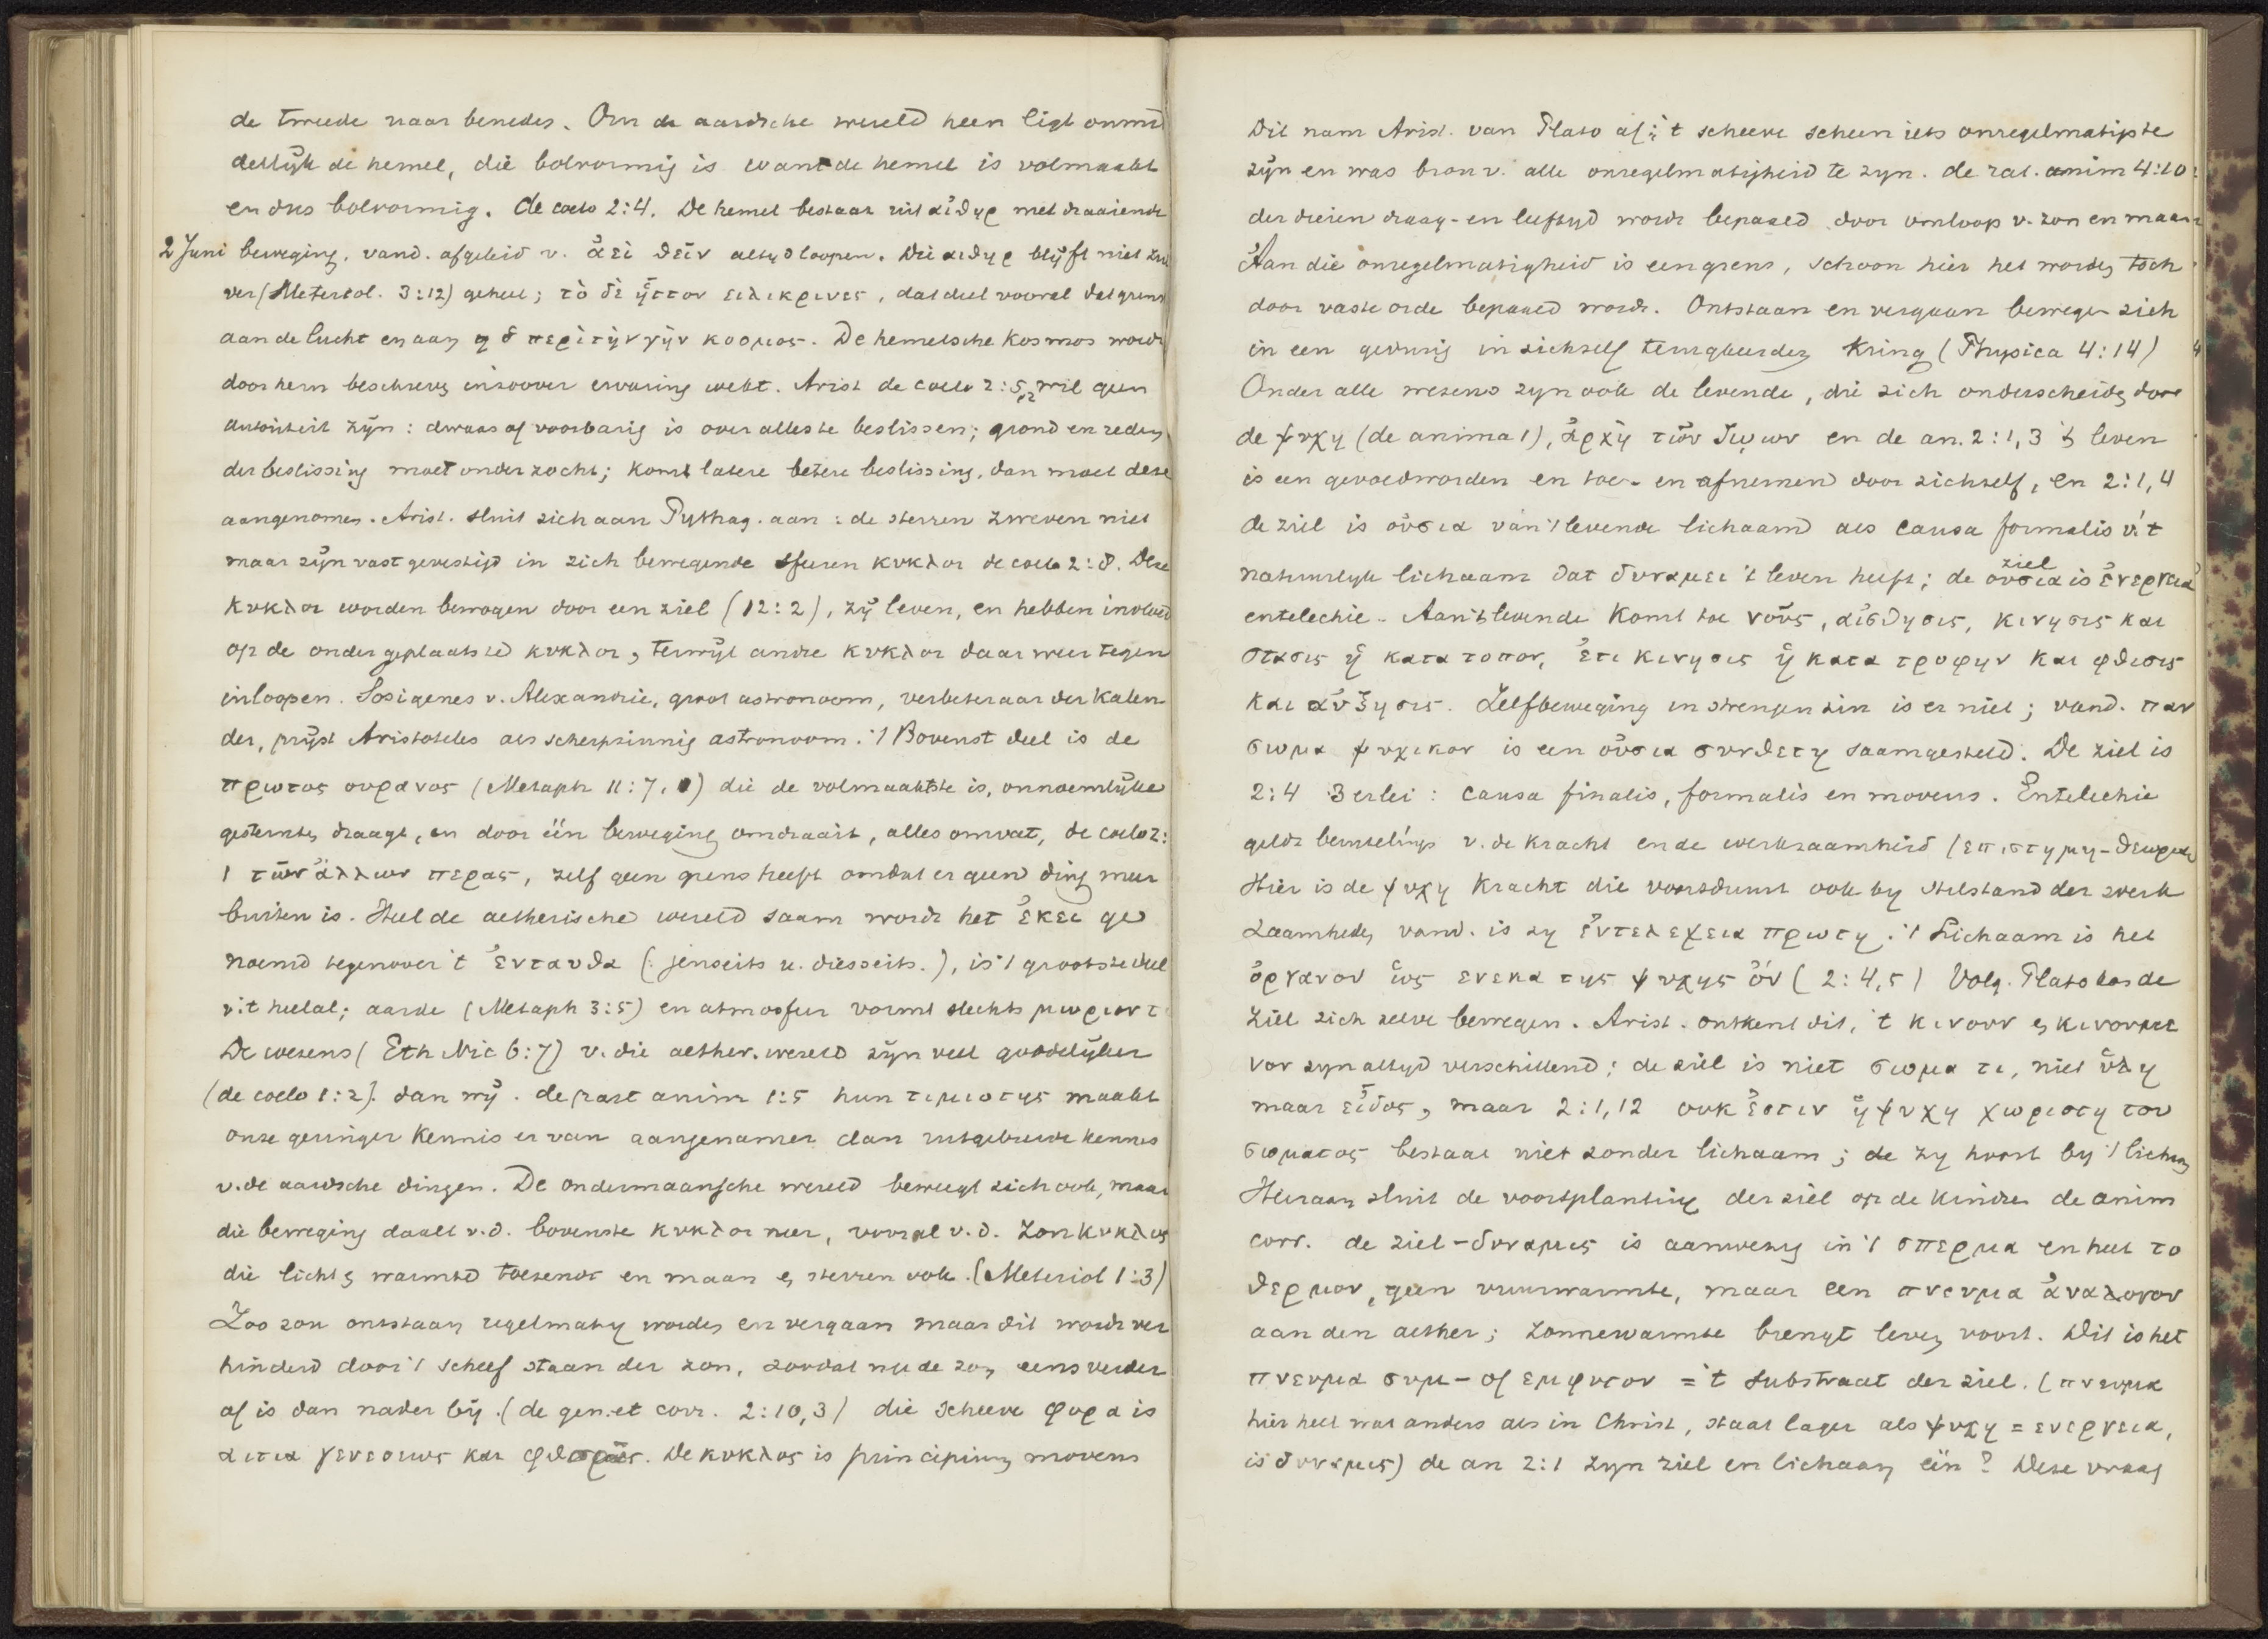 de tweede naar beneden. Om de aardsche wereld heen ligt onmid
dellijk de hemel, die bolvormig is want de hemel is volmaakt
en dus bolvormig. de coelo 2:4. De hemel bestaat uit αἰθηρ met draaiende
2 Juni beweging, vand. afgeleid v. ἀεὶ θεῖν altyd loopen. Die αιθηρ blijft niet zui
ver (Metereol. 3:12) geheel; τὸ δὲ ἧττον ειλικρινες, dat deel vooral dat grens
aan de lucht en aan ὁ περὶ τὴν γῆν κοσμος. De hemelsche Kosmos wordt
door hem beschreven inzoover ervaring reikt. Arist de coelo 2:5,12 wil geen
autoriteit zijn: dwaas of voorbarig is over alles te beslissen; grond en reden
der beslissing moet onderzocht; komt latere betere beslissing, dan moet deze
aangenomen. Arist. sluit zich aan Pythag. aan: de sterren zweven niet
maar zijn vast gevestigd in zich bewegende sfeeren κυκλοι de coelo 2:8. Deze
κυκλοι worden bewogen door een ziel (12:2), zij leven, en hebben invloed
op de onder geplaatste κυκλοι, terwijl andre κυκλοι daar weer tegen
inloopen. Sosigenes v. Alexandrie, groot astronoom, verbeteraar der Kalen
der, prijst Aristoteles als scherpzinnig astronoom. 't Bovenst deel is de
πρωτος ουρανος (Metaph 11:7,) die de volmaaktste is, onnoemlijke
gesternten draagt, en door één beweging omdraait, alles omvat, de coelo 2:
1 τῶν ἄλλων περας, zelf geen grens heeft omdat er geen ding meer
buiten is. Heel de aetherische wereld saam wordt het ἐκει ge
noemd tegenover 't ἐνταυθα (: jenseits u. diesseits.), is 't grootste deel
v. 't heelal; aarde (Metaph 3:5) en atmosfeer vormt slechts μωριον τ
De wezens (Eth Nic 6:7) v. die aether. wereld zijn veel goddelijker
(de coelo 1:2). dan wij. de part anim 1:5 hun τιμιοτης maakt
onze geringer kennis er van aangenamer dan uitgebreide kennis
v. de aardsche dingen. De ondermaansche wereld beweegt zich ook, maar
die beweging daalt v.d. bovenste κυκλοι neer, vooral v.d. Zonκυκλος
die licht en warmte toezendt en maan en sterren ook. (Meteriol 1:3)
Zoo zou ontstaan regelmatig worden en vergaan maar dit wordt ver
hinderd door 't scheef staan der zon, zoodat nu de zon eens verder
af is dan nader bij. (de gen. et corr. 2:10,3) die scheeve φορα is
αιτια γενεσεως και φθορᾶς. De κυκλος is principium movens
Dit nam Arist. van Plato af; 't scheeve scheen iets onregelmatigs te
zijn en was bron v. alle onregelmatigheid te zyn. de anim 4:10:
der dieren draag- en leeftyd wordt bepaald door omloop v. zon en maan
Aan die onregelmatigheid is een grens, schoon hier het worden toch
door vaste orde bepaald wordt. Ontstaan en vergaan bewegen zich
in een gedurig in zichzelf terugkeerden Kring (Physica 4:14)
Onder alle wezens zyn ook de levende, die zich onderscheiden door
de ψυχη (de anima 1), ἀρχὴ τῶν ζωων en de an. 2:1,3 't leven
is een gevoedworden en toe- en afnemen door zichzelf, en 2:1,4
de ziel is οὐσια van 't levende lichaam als causa formalis v. 't
natuurlyk lichaam dat δυναμει 't leven heeft; de οὐσια ziel is ἐνεργεια
entelechie. Aan 't levende komt toe νοῦς, αἰσθησις, κινησις και
στασις ἡ κατα τοπον, ἐτι κινησις ἡ κατα τροφην και φθισις
και αὐξησις. Zelfbeweging in strengen zin is er niet; vand. παν
σωμα ψυχικον is een οὐσια συνθετη saamgesteld. De ziel is
2:4 3erlei: causa finalis, formalis en movens. Entelechie
geldt beurtelings v. de kracht en de werkzaamheid (επιστημη-θεωρειν
Hier is de ψυχη Kracht die voortduurt ook by stilstand der werk
zaamheden vand. is zy ἐντελεχεια πρωτη. 't Lichaam is het
ὀργανον ὡς ενεκα της ψυχης ὀν (2:4,5) Volg. Plato kon de
ziel zich zelve bewegen. Arist. ontkent dit, 't κινουν en κινουμε
νον zyn altyd verschillend; de ziel is niet σωμα τι, niet ὑλη
maar εἶδος, maar 2:1,12 ουκ ἐστιν ἡ ψυχη χωριστη του
σωματος bestaat niet zonder lichaam; de zy hoort by 't lichaam
Hieraan sluit de voortplanting der ziel op de kinder de anim
corr. de ziel-δυναμις is aanwezig in 't σπερμα en heet το
θερμον, geen vuurwarmte, maar een πνευμα ἀναλογον
aan den aether; Zonnewarmte brengt leven voort. Dit is het
πνευμα συμ- of εμφυτον = 't substraat der ziel. (πνευμα
hier heel wat anders als in Christ, staat lager als ψυχη = ενεργεια,
is δυναμις) de an 2:1 Zyn ziel en lichaam één? Deze vraag